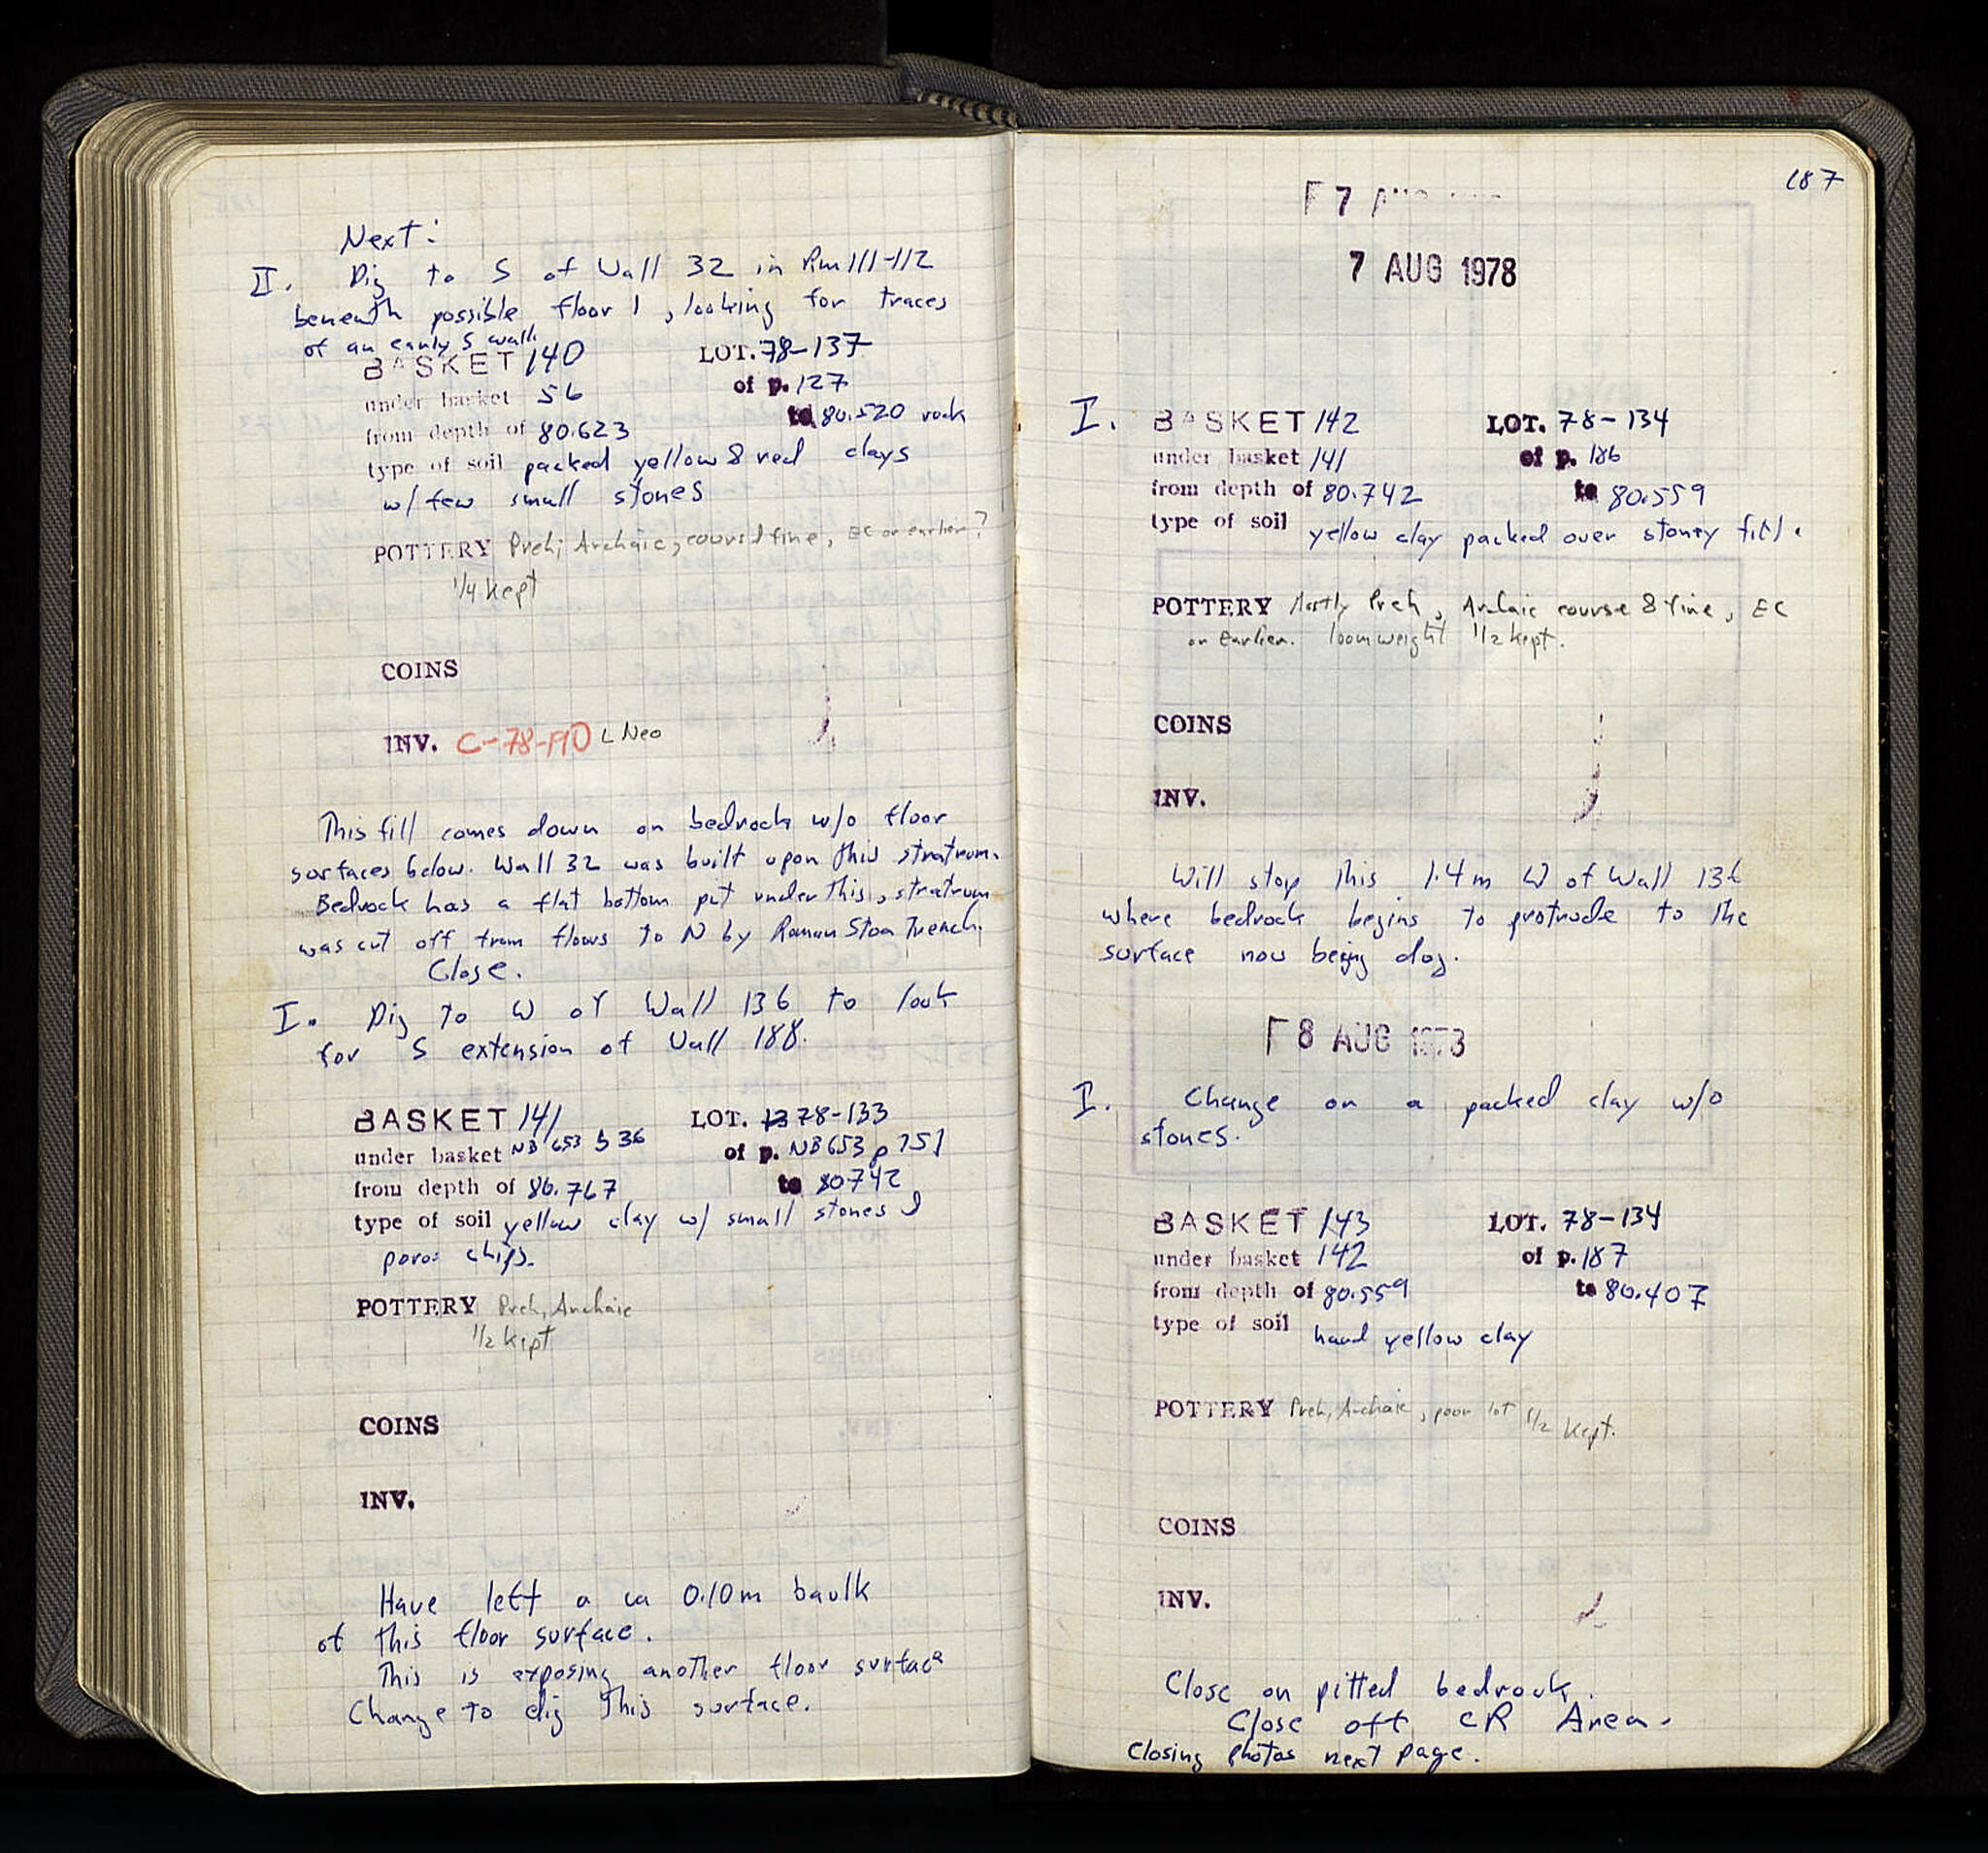 Next:
II. Dig to S of Wall 32 in Rm 111-112
beneath possible floor 1, looking for traces
of an early S wall.
BASKET 140 LOT. 78-137
under basket 56 of p. 127
from depth of 80.623 to 80.520 rock
type of soil packed yellow & red clays
w/ few small stones
POTTERY Preh; Archaic, course & fine, EC or earlier?
1/4 kept
COINS
INV. C-78-190 L Neo
This fill comes down on bedrock w/o floor
surfaces below. Wall 32 was built upon this stratum.
Bedrock has a flat bottom pit under this, stratum
was cut off from floors to N by Roman Stoa Trench.
Close.
I. Dig to W of Wall 136 to look
for S extension of Wall 188.
BASKET 141 LOT. 78-133
under basket NB 653 b 36 of p. NB 653 p 151
from depth of 80.767 to 80742
type of soil yellow clay w/ small stones &
poros chips.
POTTERY Preh, Archaic
1/2 kept
COINS
INV.
Have left a ca 0.10m baulk
of this floor surface.
This is exposing another floor surface
Change to dig this surface.
187
F 7
7 AUG 1978
I. BASKET 142 LOT. 78-134
under basket 141 of p. 186
from depth of 80.742 to 80.559
type of soil yellow clay packed over stoney fill.
POTTERY Mostly Preh, Archaic course & fine, EC
or Earlier. loomweight 1/2 kept.
COINS
INV.
Will stop this 1.4m W of Wall 136
where bedrock begins to protrude to the
surface now being dug.
F 8 AUG 1978
I. Change on a packed clay w/o
stones.
BASKET 143 LOT. 78-134
under basket 142 of p. 187
from depth of 80.559 to 80.407
type of soil hard yellow clay
POTTERY Preh, Archaic, poor lot 1/2 kept.
COINS
INV.
Close on pitted bedrock.
Close off CR Area.
Closing photos next page.